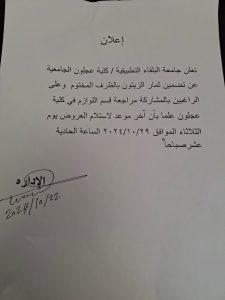 إعلان
تعلن جامعة البلقاء التطبيقية / كلية عجلون الجامعية
عن تضمين ثمار الزيتون بالظرف المختوم وعلى
الراغبين بالمشاركة مراجعة قسم اللوازم في كلية
عجلون علما بأن آخر موعد لاستلام العروض يوم
الثلاثاء الموافق ٢٠٢٤/١٠/٢٩ الساعة الحادية
عشر صباحاً
الإداره
2024/10/22